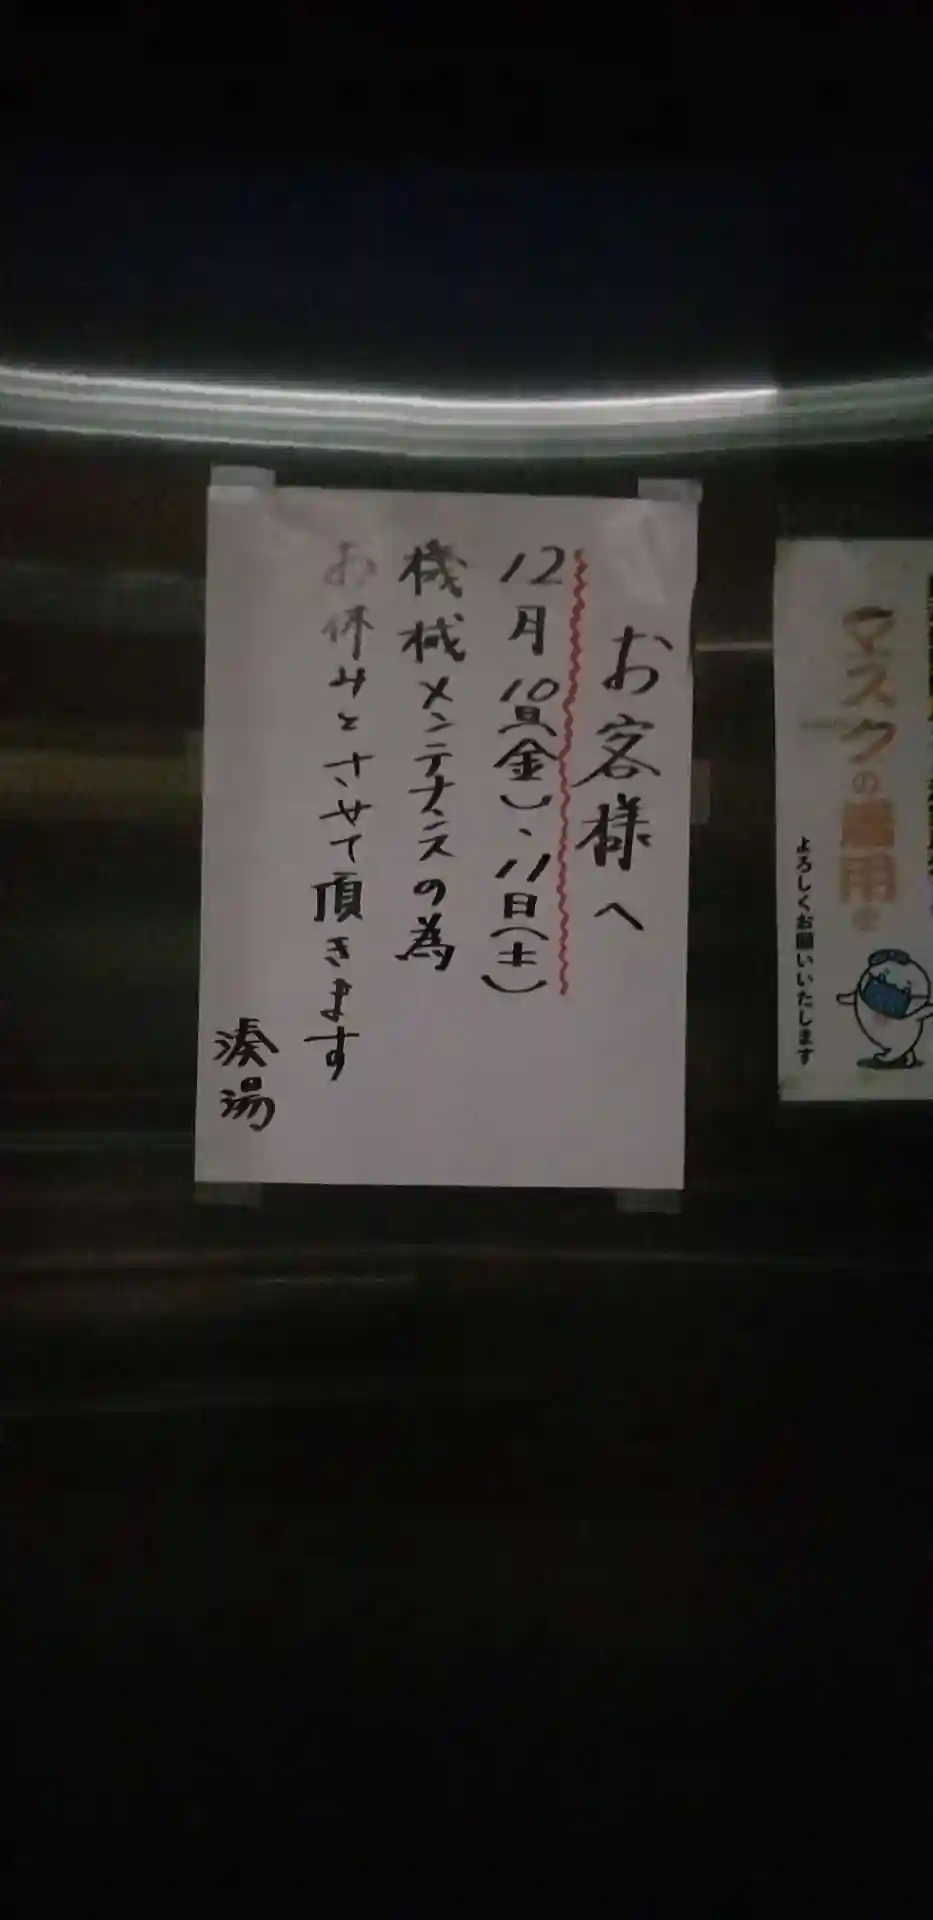 お客様へ
12月10日(金)、11日(土)
機械メンテナンスの為
お休みとさせて頂きます
湊湯
マスクの着用を
よろしくお願いいたします